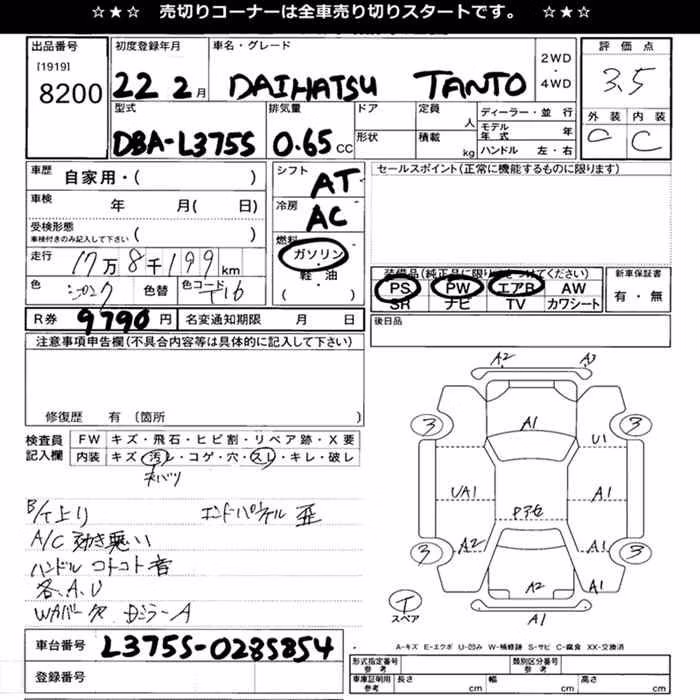 ☆★☆ 売切りコーナーは全車売り切りスタートです。 ☆★☆
出品番号 初度登録年月 車名・グレード 2WD・4WD 評価点
[1919]
8200 22 2月 DAIHATSU TANTO 3.5
型式 排気量 ドア 定員 人 ディーラー・並行 外装 内装
DBA-L375S 0.65 CC 形状 積載 kg モデル年式 年 C C
ハンドル 左・右
車歴 自家用・( ) シフト AT セールスポイント(正常に機能するものに限ります)
車検 年 月( 日) 冷房 AC
受検形態
車検付きのみ記入して下さい ( ) 燃料
ガソリン
走行 17万8千199km 軽・油 装備品(純正品に限り○をつけてください) 新車保証書
色 色替 色コード T16 ( ) PS PW エアB AW 有・無
SR ナビ TV カワシート
R券 9790円 名変通知期限 月 日 後日品
注意事項申告欄(不具合内容等は具体的に記入して下さい)
修復歴 有 (箇所 )
検査員 FW キズ・飛石・ヒビ割・リペア跡・X要
記入欄 内装 キズ・汚レ・コゲ・穴・スレ・キレ・破レ
ネバツ
B/T上り エンドパネル 歪
A/C 効き悪い
ハンドル コトコト音
各.A.U
A2 A3
3 A1 3
U1
UA1 A1
Pアセ
3 A2 A1 3
A2 A1
T A1
スペア
A-キズ E-エクボ U-凹み W-補修跡 S-サビ C-腐食 XX-交換済
車台番号 L375S-0285854
登録番号
形式指定番号 参考 類別区分番号 参考
車庫証明用 参考 長さ cm 幅 cm 高さ cm